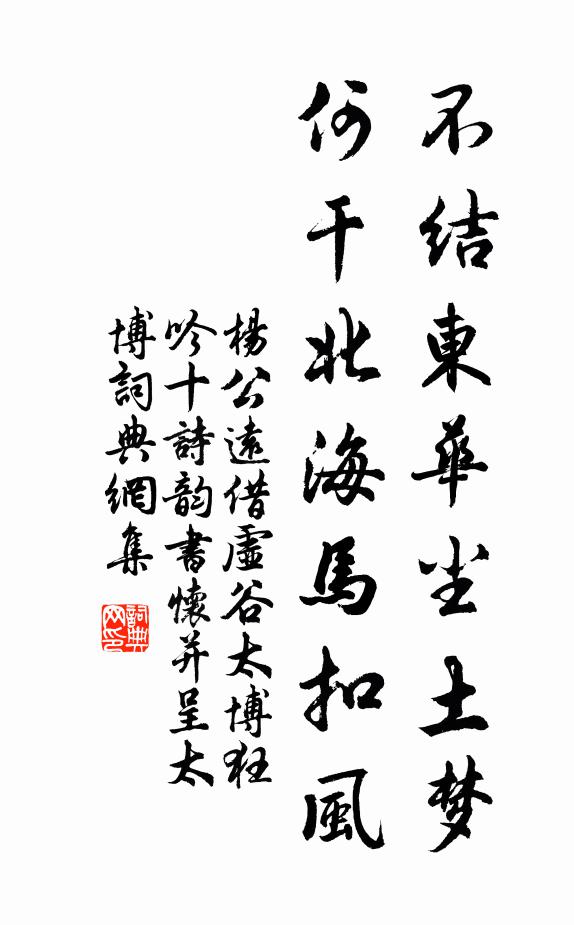 不结東華尘土梦
何干北海馬扣風
楊公遠借虛谷太博狂
吟十詩韵書懷并呈太
博詞典網集
詞典网印